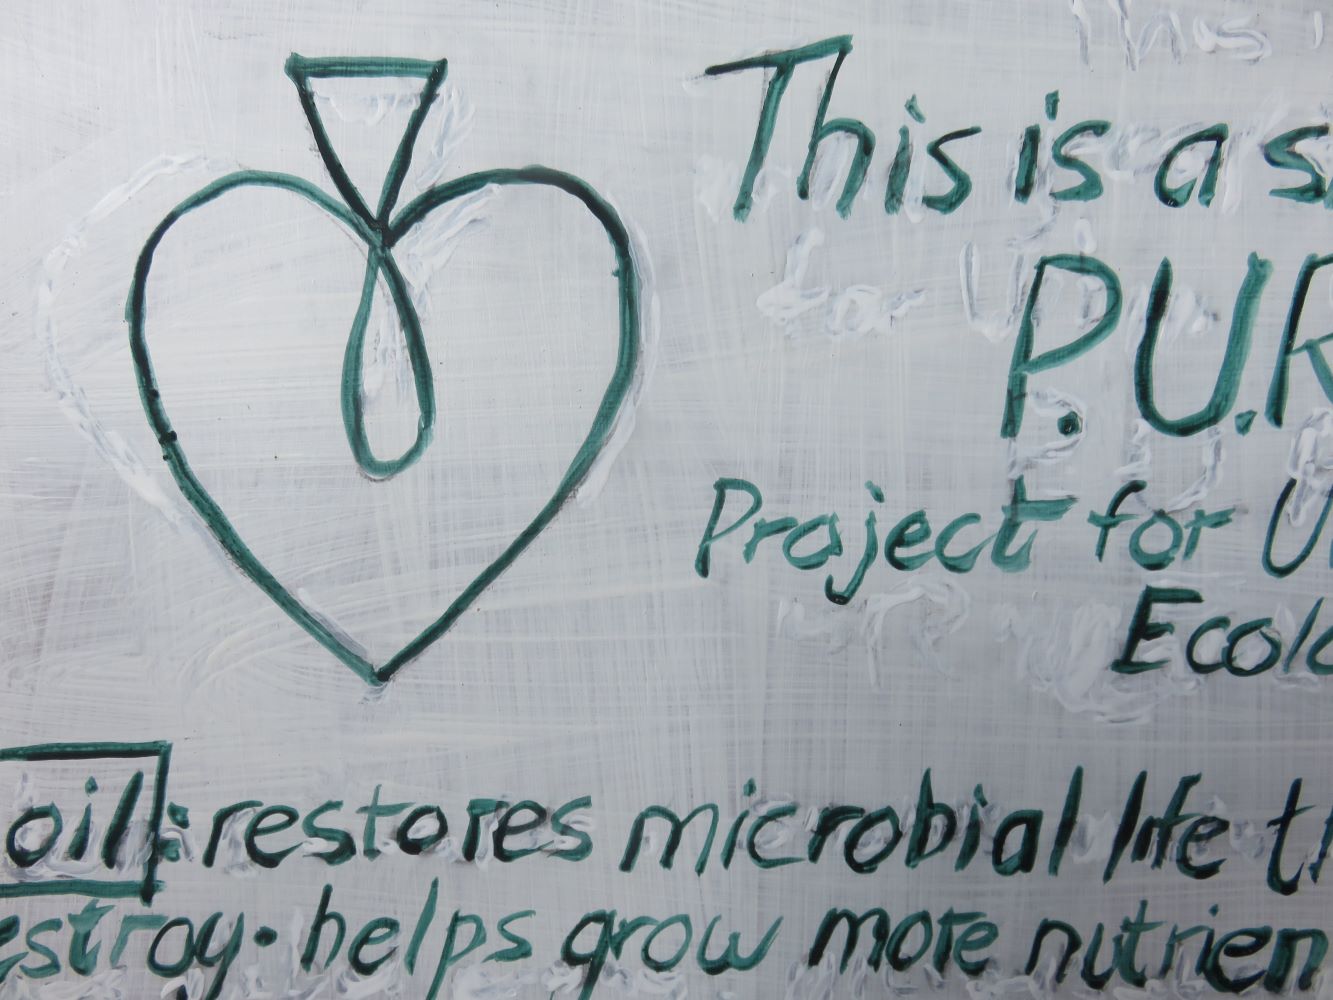 This is a s
P.U.R
Project for U
Ecolo
oil: restores microbial life th
estroy • helps grow more nutrien